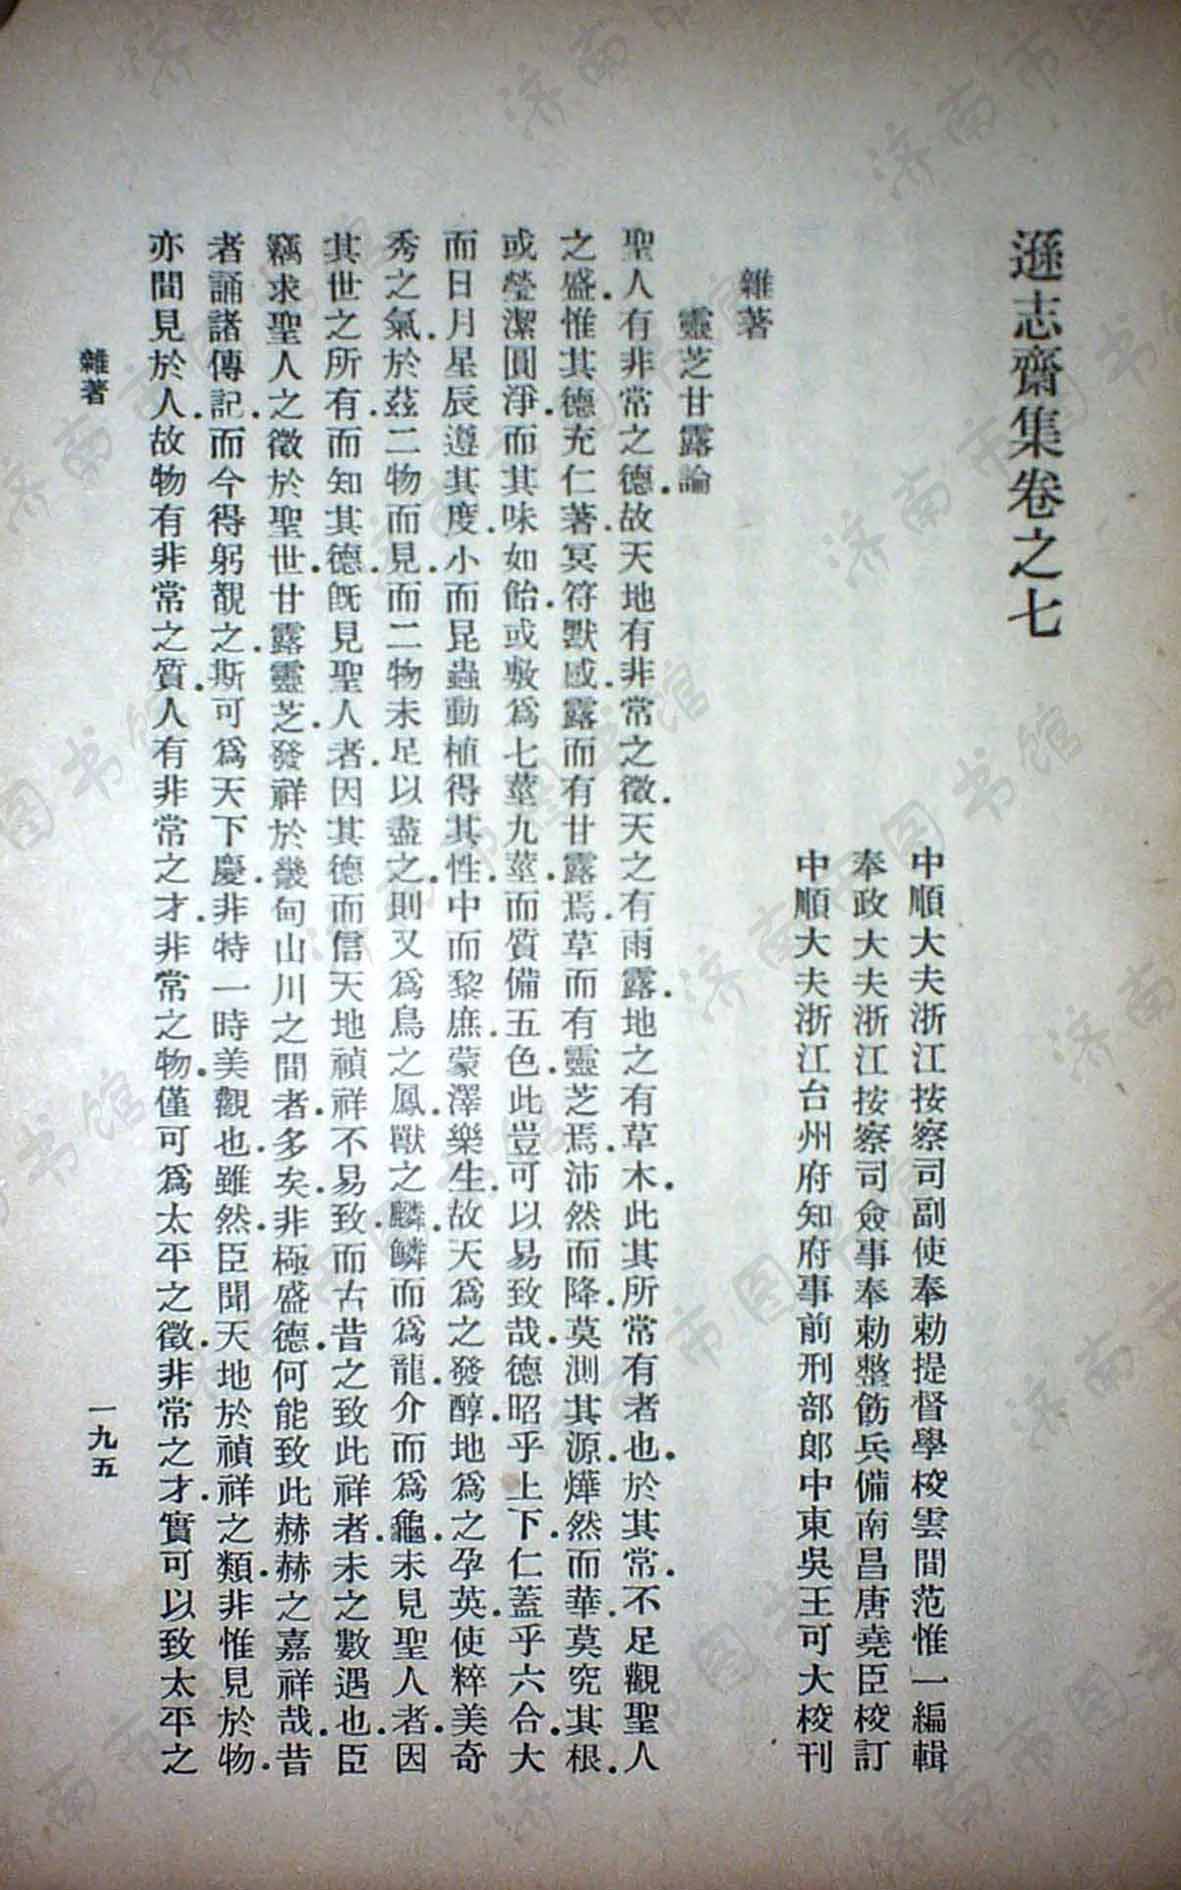 遜志齋集卷之七
中順大夫浙江按察司副使奉勅提督學校雲間范惟一編輯
奉政大夫浙江按察司僉事奉勅整飭兵備南昌唐堯臣校訂
中順大夫浙江台州府知府事前刑部郎中東吳王可大校刊
雜著
靈芝甘露論
聖人有非常之德．故天地有非常之徵．天之有雨露．地之有草木．此其所常有者也．於其常．不足觀聖人
之盛．惟其德充仁著．冥符默感．露而有甘露焉．草而有靈芝焉．沛然而降．莫測其源．燁然而華．莫究其根．
或瑩潔圓淨．而其味如飴．或敷爲七莖九莖．而質備五色．此豈可以易致哉．德昭乎上下．仁蓋乎六合．大
而日月星辰遵其度．小而昆蟲動植得其性．中而黎庶蒙澤樂生．故天爲之發醇．地爲之孕英．使粹美奇
秀之氣．於茲二物而見．而二物未足以盡之．則又爲鳥之鳳．獸之麟．鱗而爲龍．介而爲龜．未見聖人者．因
其世之所有．而知其德．旣見聖人者．因其德而信天地禎祥不易致．而古昔之致此祥者．未之數遇也．臣
竊求聖人之徵於聖世．甘露靈芝．發祥於畿甸山川之間者．多矣．非極盛德．何能致此赫赫之嘉祥哉．昔
者誦諸傳記．而今得躬覩之．斯可爲天下慶．非特一時美觀也．雖然．臣聞天地於禎祥之類．非惟見於物．
亦間見於人．故物有非常之質．人有非常之才．非常之物．僅可爲太平之徵．非常之才．實可以致太平之
雜著
一九五
济南市图书馆